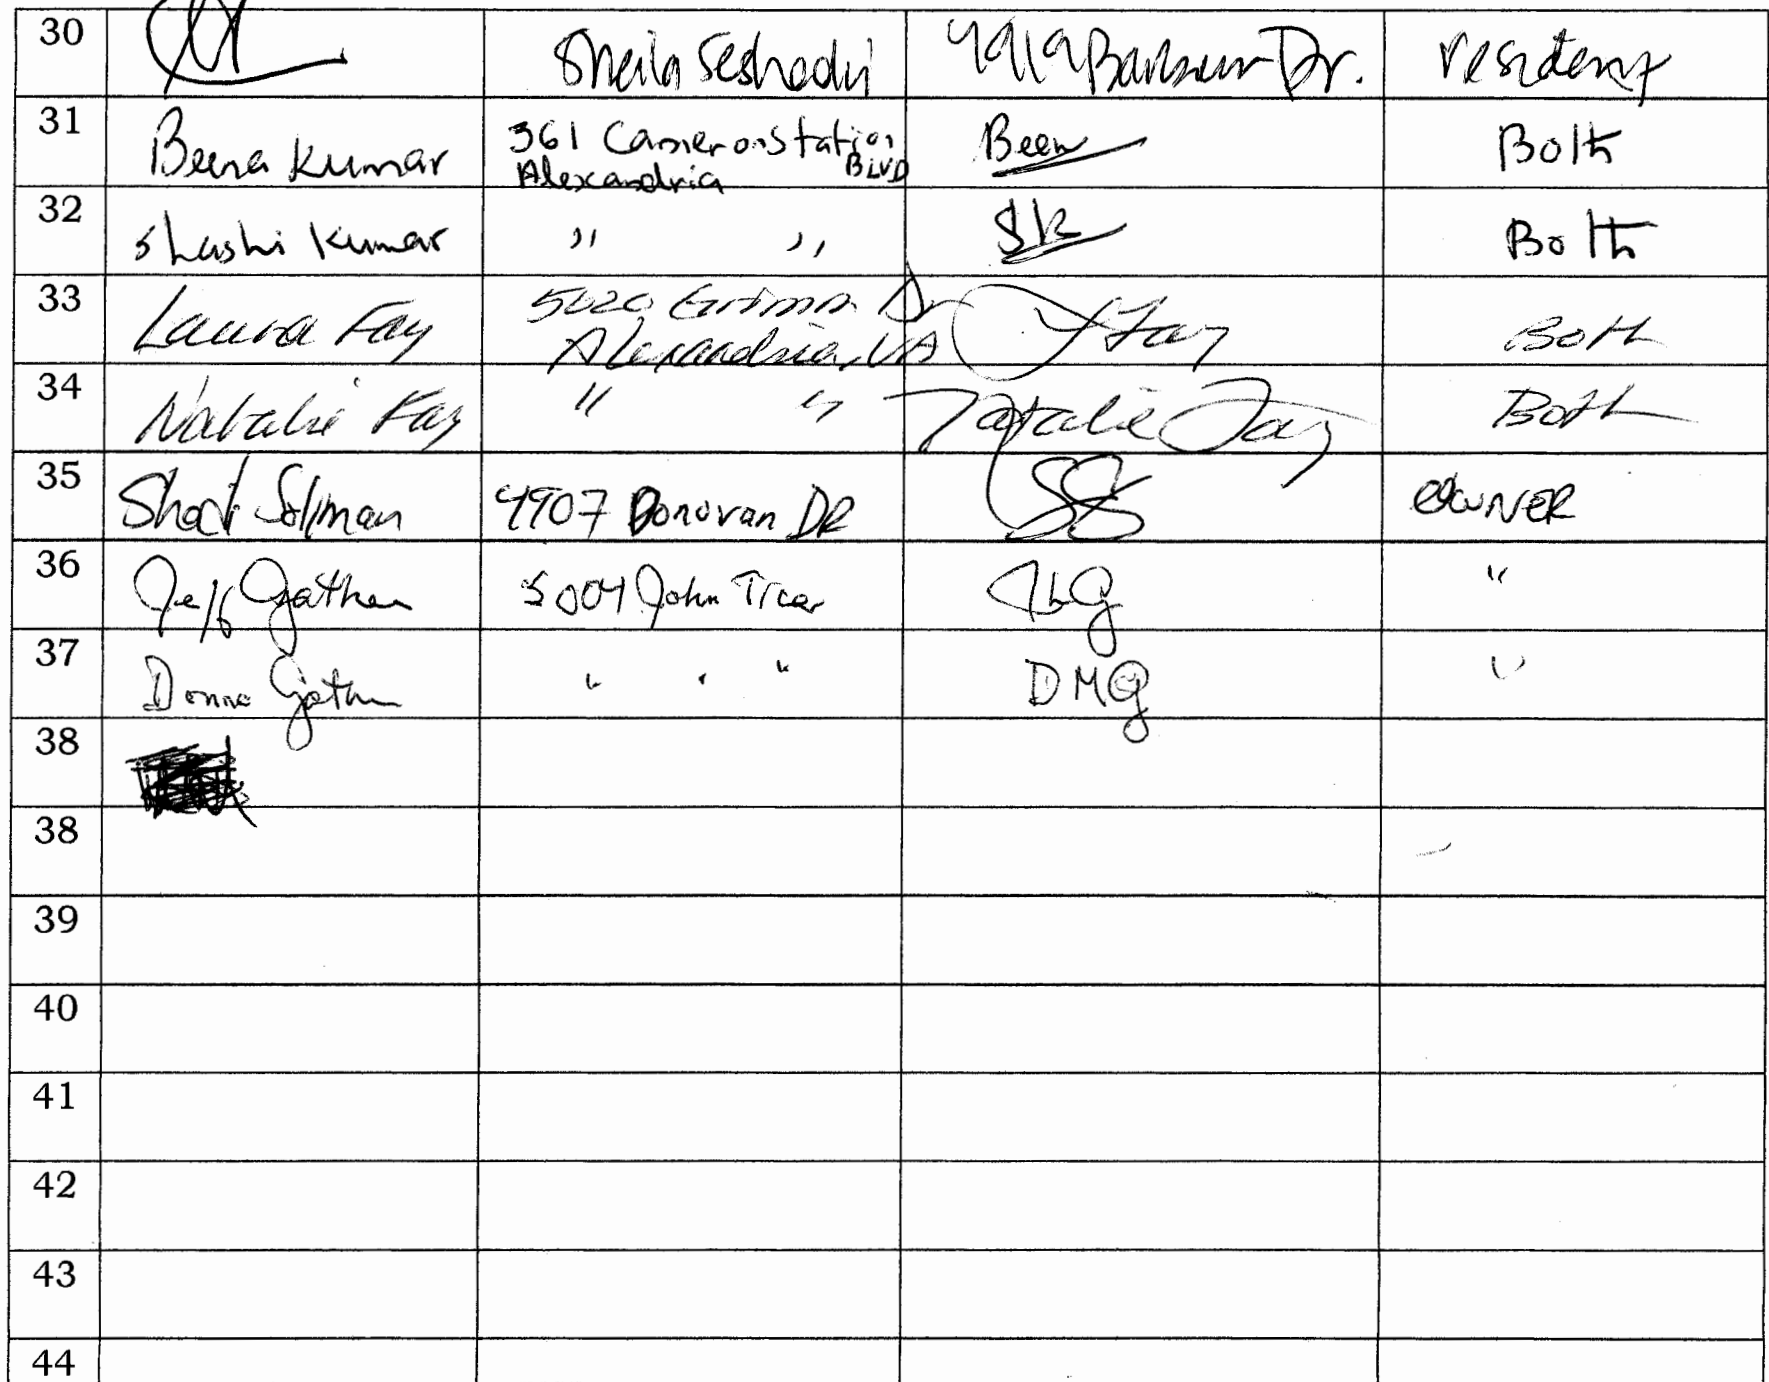 30 Sheila Seshadri 4919 Barbour Dr. resident
31 Beena Kumar 361 Cameron Station Been Both
Alexandria BLVD
32 Shashi Kumar " " SK Both
33 Laura Fay 5020 Grimm Dr LFay Both
Alexandria, VA
34 Natalie Fay " " Natalie Fay Both
35 Shadi Soliman 4907 Donovan DR SS OWNER
36 Jeff Gathers 5004 John Ticer JLG "
37 Donna " " " DMG "
38
38
39
40
41
42
43
44